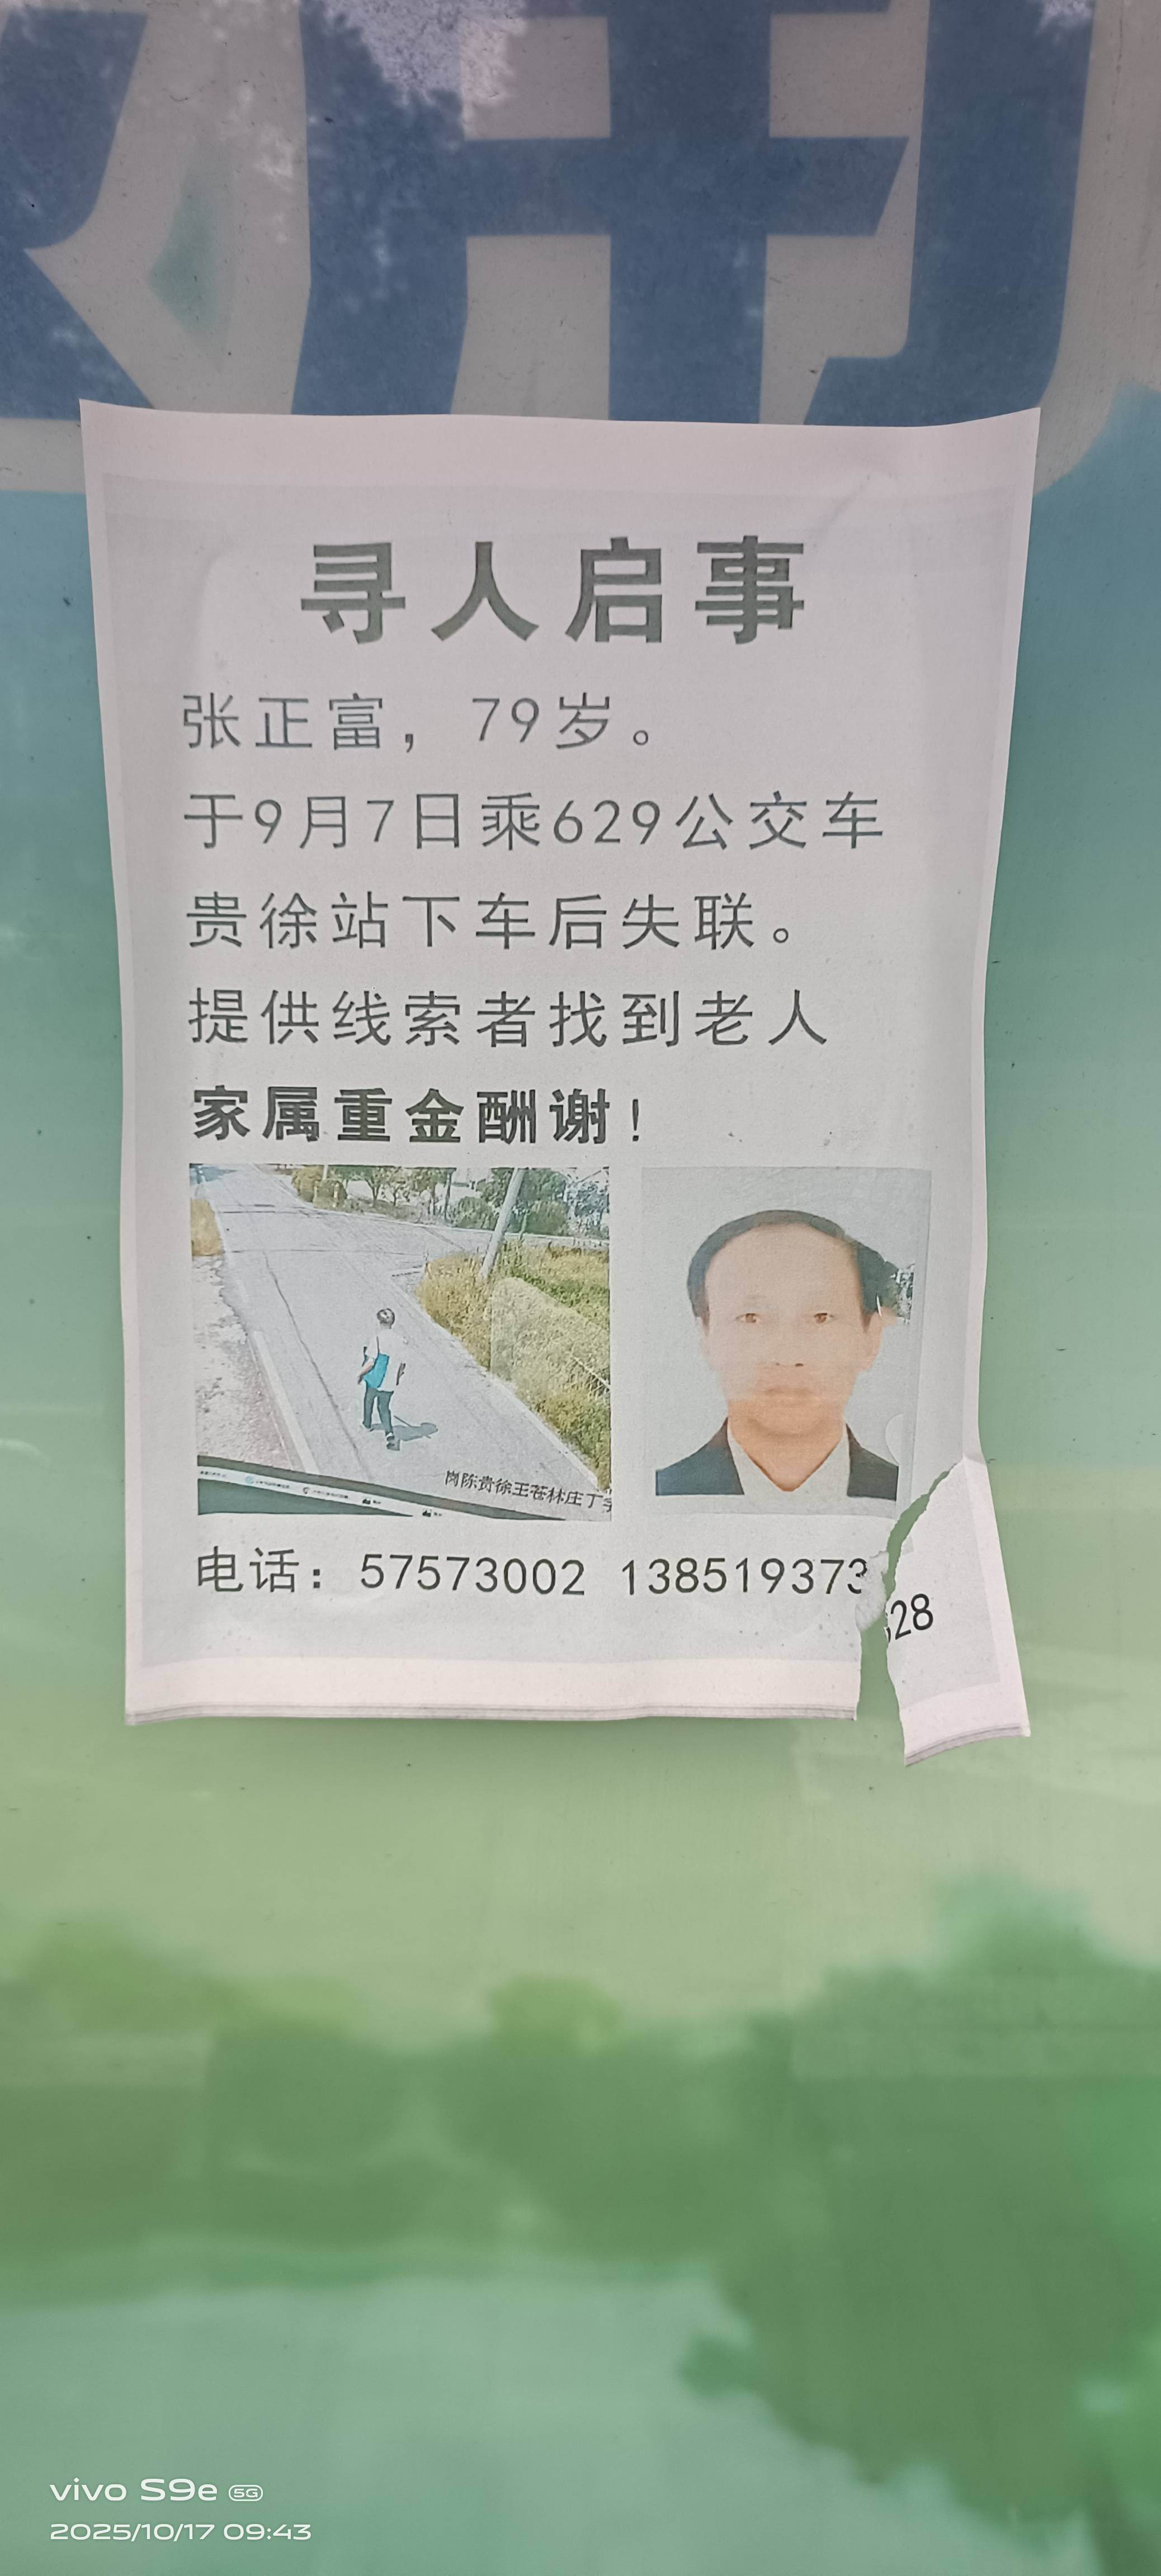 寻人启事
张正富，79岁。
于9月7日乘629公交车
贵徐站下车后失联。
提供线索者找到老人
家属重金酬谢！
岗陈贵徐王苍林庄丁
电话：57573002 138519373
28
vivo S9e 5G
2025/10/17 09:43